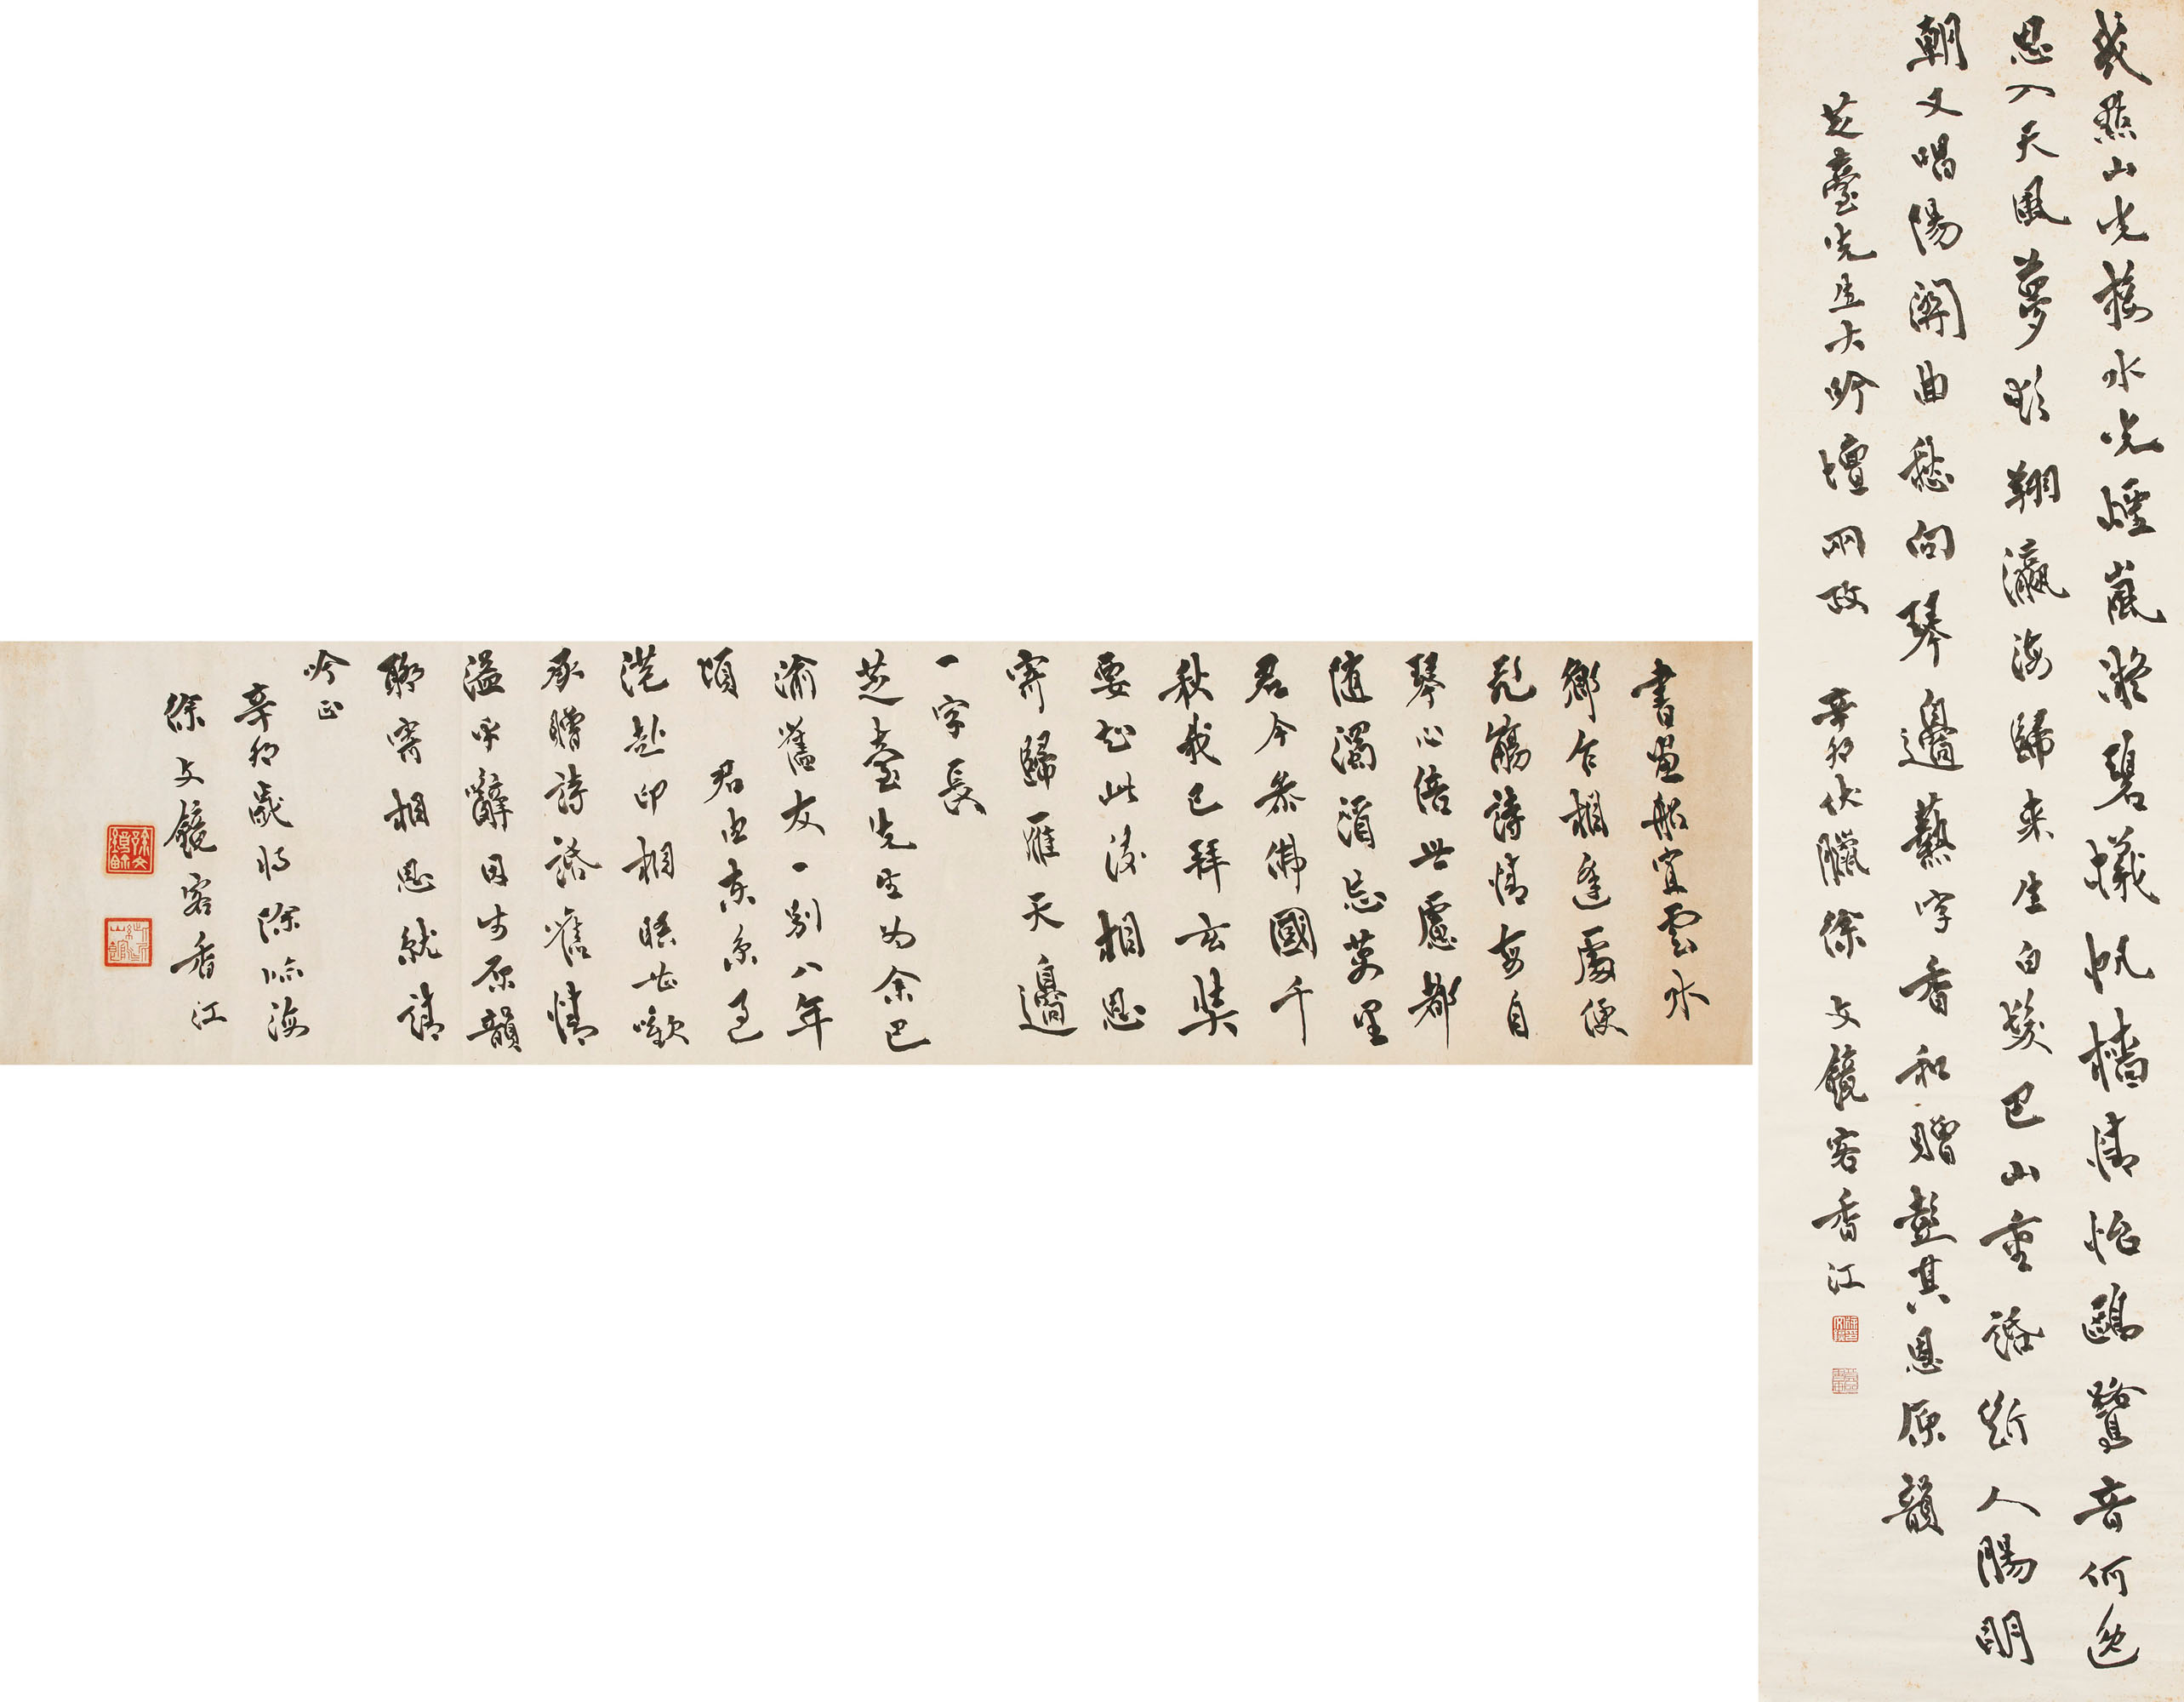 幾點山光接水光煙嵐凝碧艤帆檣情怡鷗鷺音何逸
思入天風夢欲翔瀛海歸來生白髮巴山重話斷人腸明
朝又唱陽關曲愁向琴邊爇字香和贈彭其恩原韻
芝臺先生大吟壇兩政 辛卯伏臘徐文鏡客香江
書畫船宜雲水
鄉乍相逢處便
飛觴詩情每自
琴心倍世慮都
隨濁酒忘萬里
君今參佛國千
秋我已拜玄奘
要知此後相思
寄歸雁天邊
一字長
芝臺先生為余巴
渝舊友一別八年
頃 君由東京過
港赴印相晤甚歡
承贈詩話舊情
溢乎辭因步原韻
聊寄相思就請
吟正
辛卯歲將除臨海
徐文鏡客香江